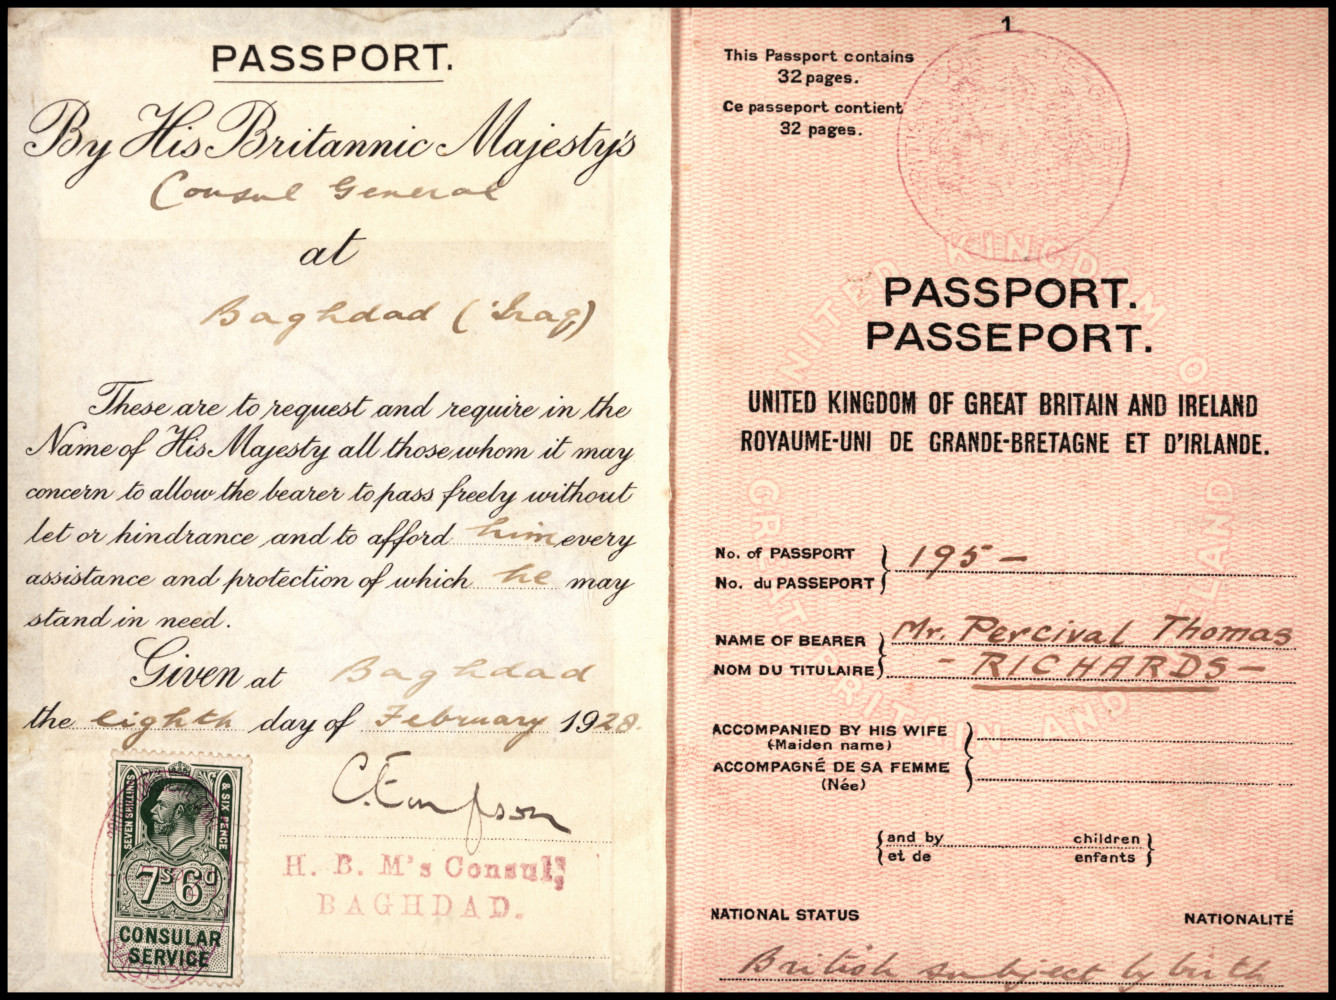 PASSPORT.
By His Britannic Majesty's
Consul General
at
Baghdad ('Iraq)
These are to request and require in the
Name of His Majesty all those whom it may
concern to allow the bearer to pass freely without
let or hindrance and to afford him every
assistance and protection of which he may
stand in need.
Given at Baghdad
the eighth day of February 1928.
SEVEN SHILLINGS & SIX PENCE
7s 6d
CONSULAR
SERVICE
H. B. M's Consul,
BAGHDAD.
1
This Passport contains
32 pages.
Ce passeport contient
32 pages.
UNITED KINGDOM OF
GREAT BRITAIN AND IRELAND
PASSPORT.
PASSEPORT.
UNITED KINGDOM OF GREAT BRITAIN AND IRELAND
ROYAUME-UNI DE GRANDE-BRETAGNE ET D'IRLANDE.
No. of PASSPORT
No. du PASSEPORT
195 -
NAME OF BEARER
NOM DU TITULAIRE
Mr. Percival Thomas
- RICHARDS -
ACCOMPANIED BY HIS WIFE
(Maiden name)
ACCOMPAGNÉ DE SA FEMME
(Née)
and by children
et de enfants
NATIONAL STATUS NATIONALITÉ
British subject by birth